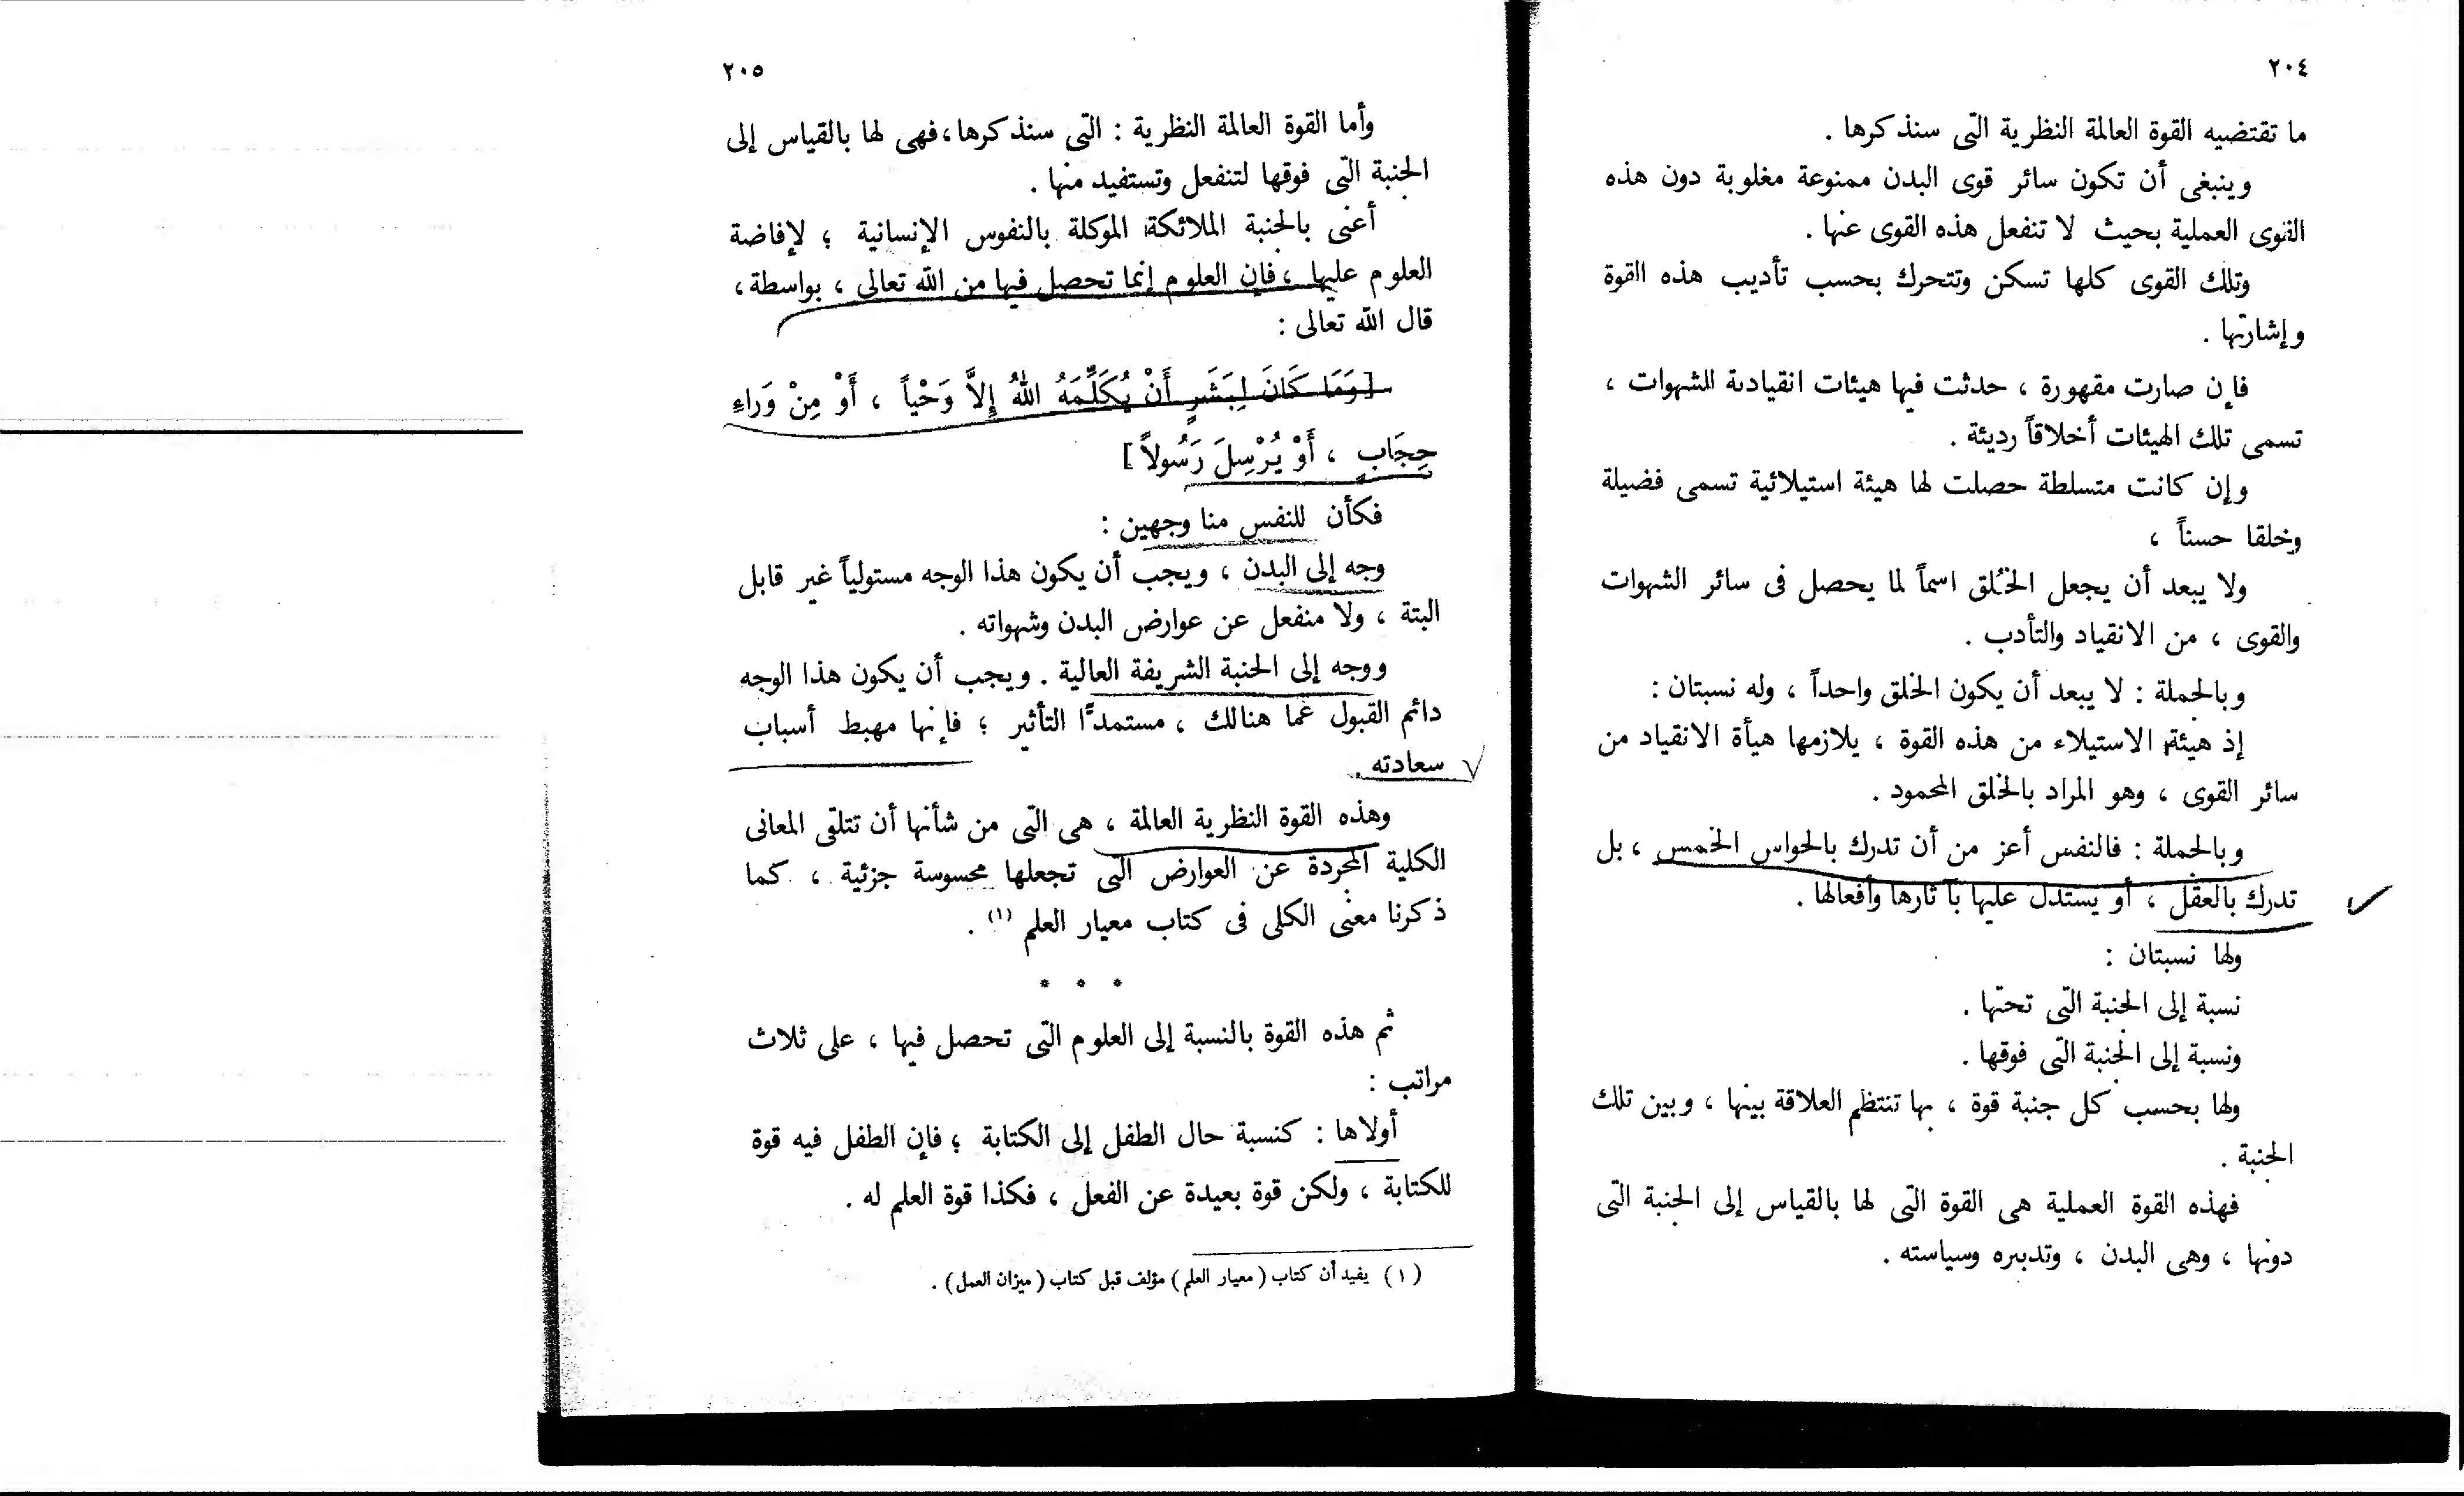 ٢٠٤
ما تقتضيه القوة العالمة النظرية التى سنذكرها .
وينبغى أن تكون سائر قوى البدن ممنوعة مغلوبة دون هذه
القوى العملية بحيث لا تنفعل هذه القوى عنها .
وتلك القوى كلها تسكن وتتحرك بحسب تأديب هذه القوة
وإشارتها .
فإن صارت مقهورة ، حدثت فيها هيئات انقيادية للشهوات ،
تسمى تلك الهيئات أخلاقاً رديئة .
وإن كانت متسلطة حصلت لها هيئة استيلائية تسمى فضيلة
وخلقا حسناً ،
ولا يبعد أن يجعل الخُلق اسماً لما يحصل فى سائر الشهوات
والقوى ، من الانقياد والتأدب .
وبالجملة : لا يبعد أن يكون الخلق واحداً ، وله نسبتان :
إذ هيئة الاستيلاء من هذه القوة ، يلازمها هيأة الانقياد من
سائر القوى ، وهو المراد بالخلق المحمود .
وبالجملة : فالنفس أعز من أن تدرك بالحواس الخمس ، بل
تدرك بالعقل ، أو يستدل عليها بآثارها وأفعالها .
ولها نسبتان :
نسبة إلى الجنبة التى تحتها .
ونسبة إلى الجنبة التى فوقها .
ولها بحسب كل جنبة قوة ، بها تنتظم العلاقة بينها ، وبين تلك
الجنبة .
فهذه القوة العملية هى القوة التى لها بالقياس إلى الجنبة التى
دونها ، وهى البدن ، وتدبيره وسياسته .
٢٠٥
وأما القوة العالمة النظرية : التى سنذكرها ، فهى لها بالقياس إلى
الجنبة التى فوقها لتنفعل وتستفيد منها .
أعنى بالجنبة الملائكة الموكلة بالنفوس الإنسانية ؛ لإفاضة
العلوم عليها ، فإن العلوم إنما تحصل فيها من الله تعالى ، بواسطة ،
قال الله تعالى :
[ وَمَا كَانَ لِبَشَرٍ أَنْ يُكَلِّمَهُ اللهُ إِلاَّ وَحْياً ، أَوْ مِنْ وَراءِ
حِجَابٍ ، أَوْ يُرْسِلَ رَسُولاً ]
فكأن للنفس منا وجهين :
وجه إلى البدن ، ويجب أن يكون هذا الوجه مستولياً غير قابل
البتة ، ولا منفعل عن عوارض البدن وشهواته .
ووجه إلى الجنبة الشريفة العالية . ويجب أن يكون هذا الوجه
دائم القبول عما هنالك ، مستمدًّا التأثير ؛ فإنها مهبط أسباب
سعادته .
وهذه القوة النظرية العالمة ، هى التى من شأنها أن تتلقى المعانى
الكلية المجردة عن العوارض التى تجعلها محسوسة جزئية ، كما
ذكرنا معنى الكلى فى كتاب معيار العلم (١) .
* * *
ثم هذه القوة بالنسبة إلى العلوم التى تحصل فيها ، على ثلاث
مراتب :
أولاها : كنسبة حال الطفل إلى الكتابة ؛ فإن الطفل فيه قوة
للكتابة ، ولكن قوة بعيدة عن الفعل ، فكذا قوة العلم له .
( ١ ) يفيد أن كتاب ( معيار العلم ) مؤلف قبل كتاب ( ميزان العمل ) .